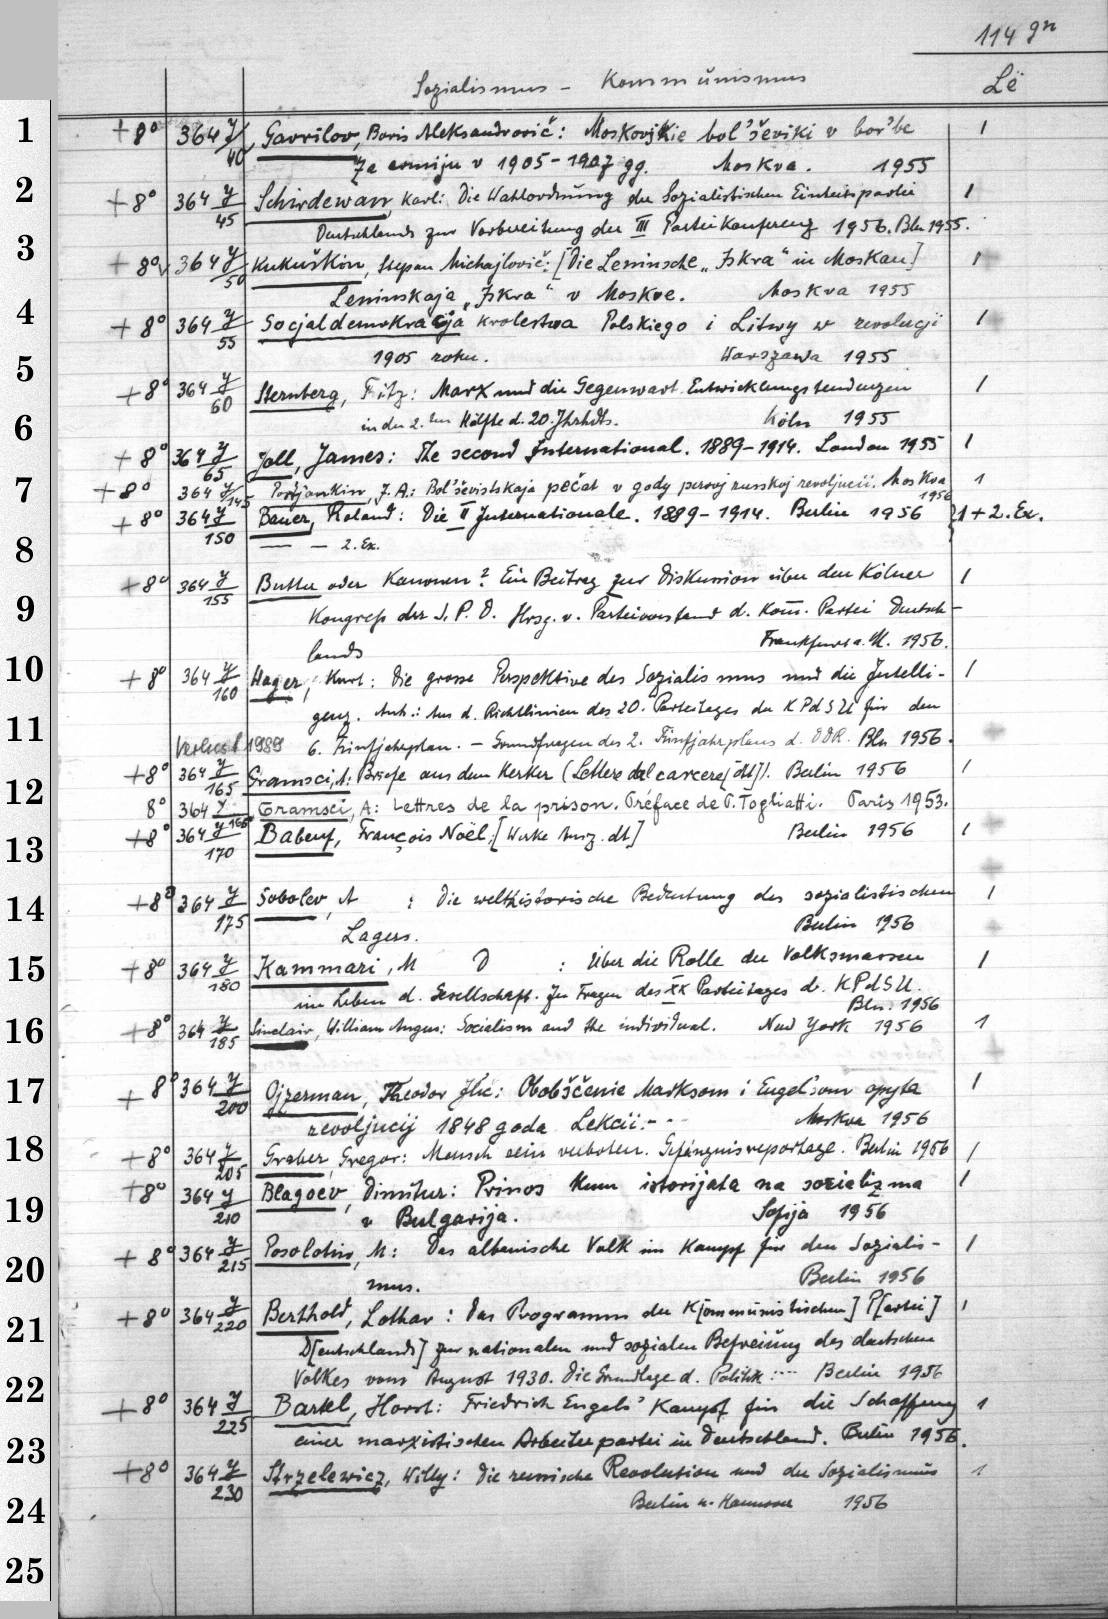 114 gn
Sozialismus – Kommŭnismus Lë
1 +8° 364 y/40 Gavrilov, Boris Aleksandrovič: Moskovskie bol'ševiki v bor'be 1
Za armiju v 1905–1907 gg. Moskva. 1955
2 +8° 364 y/45 Schirdewan, Karl: Die Wahlordnŭng der Sozialistischen Einheitspartei 1
Deutschlands zur Vorbereitung der III Parteikonferenz 1956. Bln 1955.
3 +8° 364 y/50 Kukuškin, Stepan Michajlovič: [Die Leninsche „Iskra“ in Moskau] 1
Leninskaja „Iskra“ v Moskve. Moskva 1955
4 +8° 364 y/55 Socjaldemokracja krolestwa Polskiego i Litwy w rewolucji 1
1905 roku. Warszawa 1955
5 +8° 364 y/60 Sternberg, Fritz: Marx und die Gegenwart. Entwicklungstendenzen 1
6 in der 2.ten Hälfte d. 20. Jhrhdts. Köln 1955
+8° 364 y/65 Joll, James: The second International. 1889–1914. London 1955 1
7 +8° 364 y/145 Portjankin, J. A.: Bol'ševistskaja pečat v gody pervoj russkoj revoljucii. Moskva 1
1956
+8° 364 y/150 Bauer, Roland: Die II Internationale. 1889–1914. Berlin 1956 1+2. Ex.
8 — — 2. Ex.
+8° 364 y/155 Butter oder Kanonen? Ein Beitrag zur Diskussion über den Kölner 1
9 Kongreß der S. P. D. Hrsg. v. Parteivorstand d. Kom̅. Partei Deutsch-
lands Frankfurt a. M. 1956.
10 +8° 364 y/160 Hager, Kurt: Die grosse Perspektive des Sozialismus und die Intelli- 1
11 genz. Anh.: Aus d. Richtlinien des 20. Parteitages der KPdSU für den
Verlust 1989 6. Fünfjahrplan. – Grundfragen des 2. Fünfjahrplans d. DDR. Bln 1956.
12 +8° 364 y/165 Gramsci, A: Briefe aus dem Kerker (Lettere dal carcere [dt]). Berlin 1956 1
8° 364 y/165 Gramsci, A: Lettres de la prison. Préface de P. Togliatti. Paris 1953.
13 +8° 364 y/170 Babeuf, François Noël: [Werke Ausz. dt] Berlin 1956 1
14 +8° 364 y/175 Sobolev, A : Die welthistorische Bedeutung des sozialistischen 1
Lagers. Berlin 1956
15 +8° 364 y/180 Kammari, M D : Über die Rolle der Volksmassen 1
im Leben d. Gesellschaft. Zu Fragen des XX Parteitages d. KPdSU.
Bln. 1956
16 +8° 364 y/185 Sinclair, William Angus: Socialism and the individual. New York 1956 1
17 +8° 364 y/200 Ojzerman, Theodor Il'ic: Obobščenie Marksom i Engel'som opyta 1
revoljucij 1848 goda Lekcii.- - - Moskva 1956
18 +8° 364 y/205 Graber, Gregor: Mensch sein verboten. Gefängnisreportage. Berlin 1956 1
19 +8° 364 y/210 Blagoev, Dimitur: Prinos kum istorijata na socializma 1
v Bulgarija. Sofija 1956
20 +8° 364 y/215 Posolotin, M: Das albanische Volk im Kampf für den Sozialis- 1
mus. Berlin 1956
21 +8° 364 y/220 Berthold, Lothar: Das Programm der K[ommŭnistischen] P[artei] 1
D[eutschlands] zur nationalen und sozialen Befreiŭng des deutschen
22 Volkes vom August 1930. Die Grundlage d. Politik ... Berlin 1956
+8° 364 y/225 Bartel, Horst: Friedrich Engels' Kampf für die Schaffung 1
23 einer marxistischen Arbeiterpartei in Deutschland. Berlin 1956.
+8° 364 y/230 Strzelewicz, Willy: Die russische Revolution und der Sozialismŭs 1
24 Berlin u. Hannover 1956
25